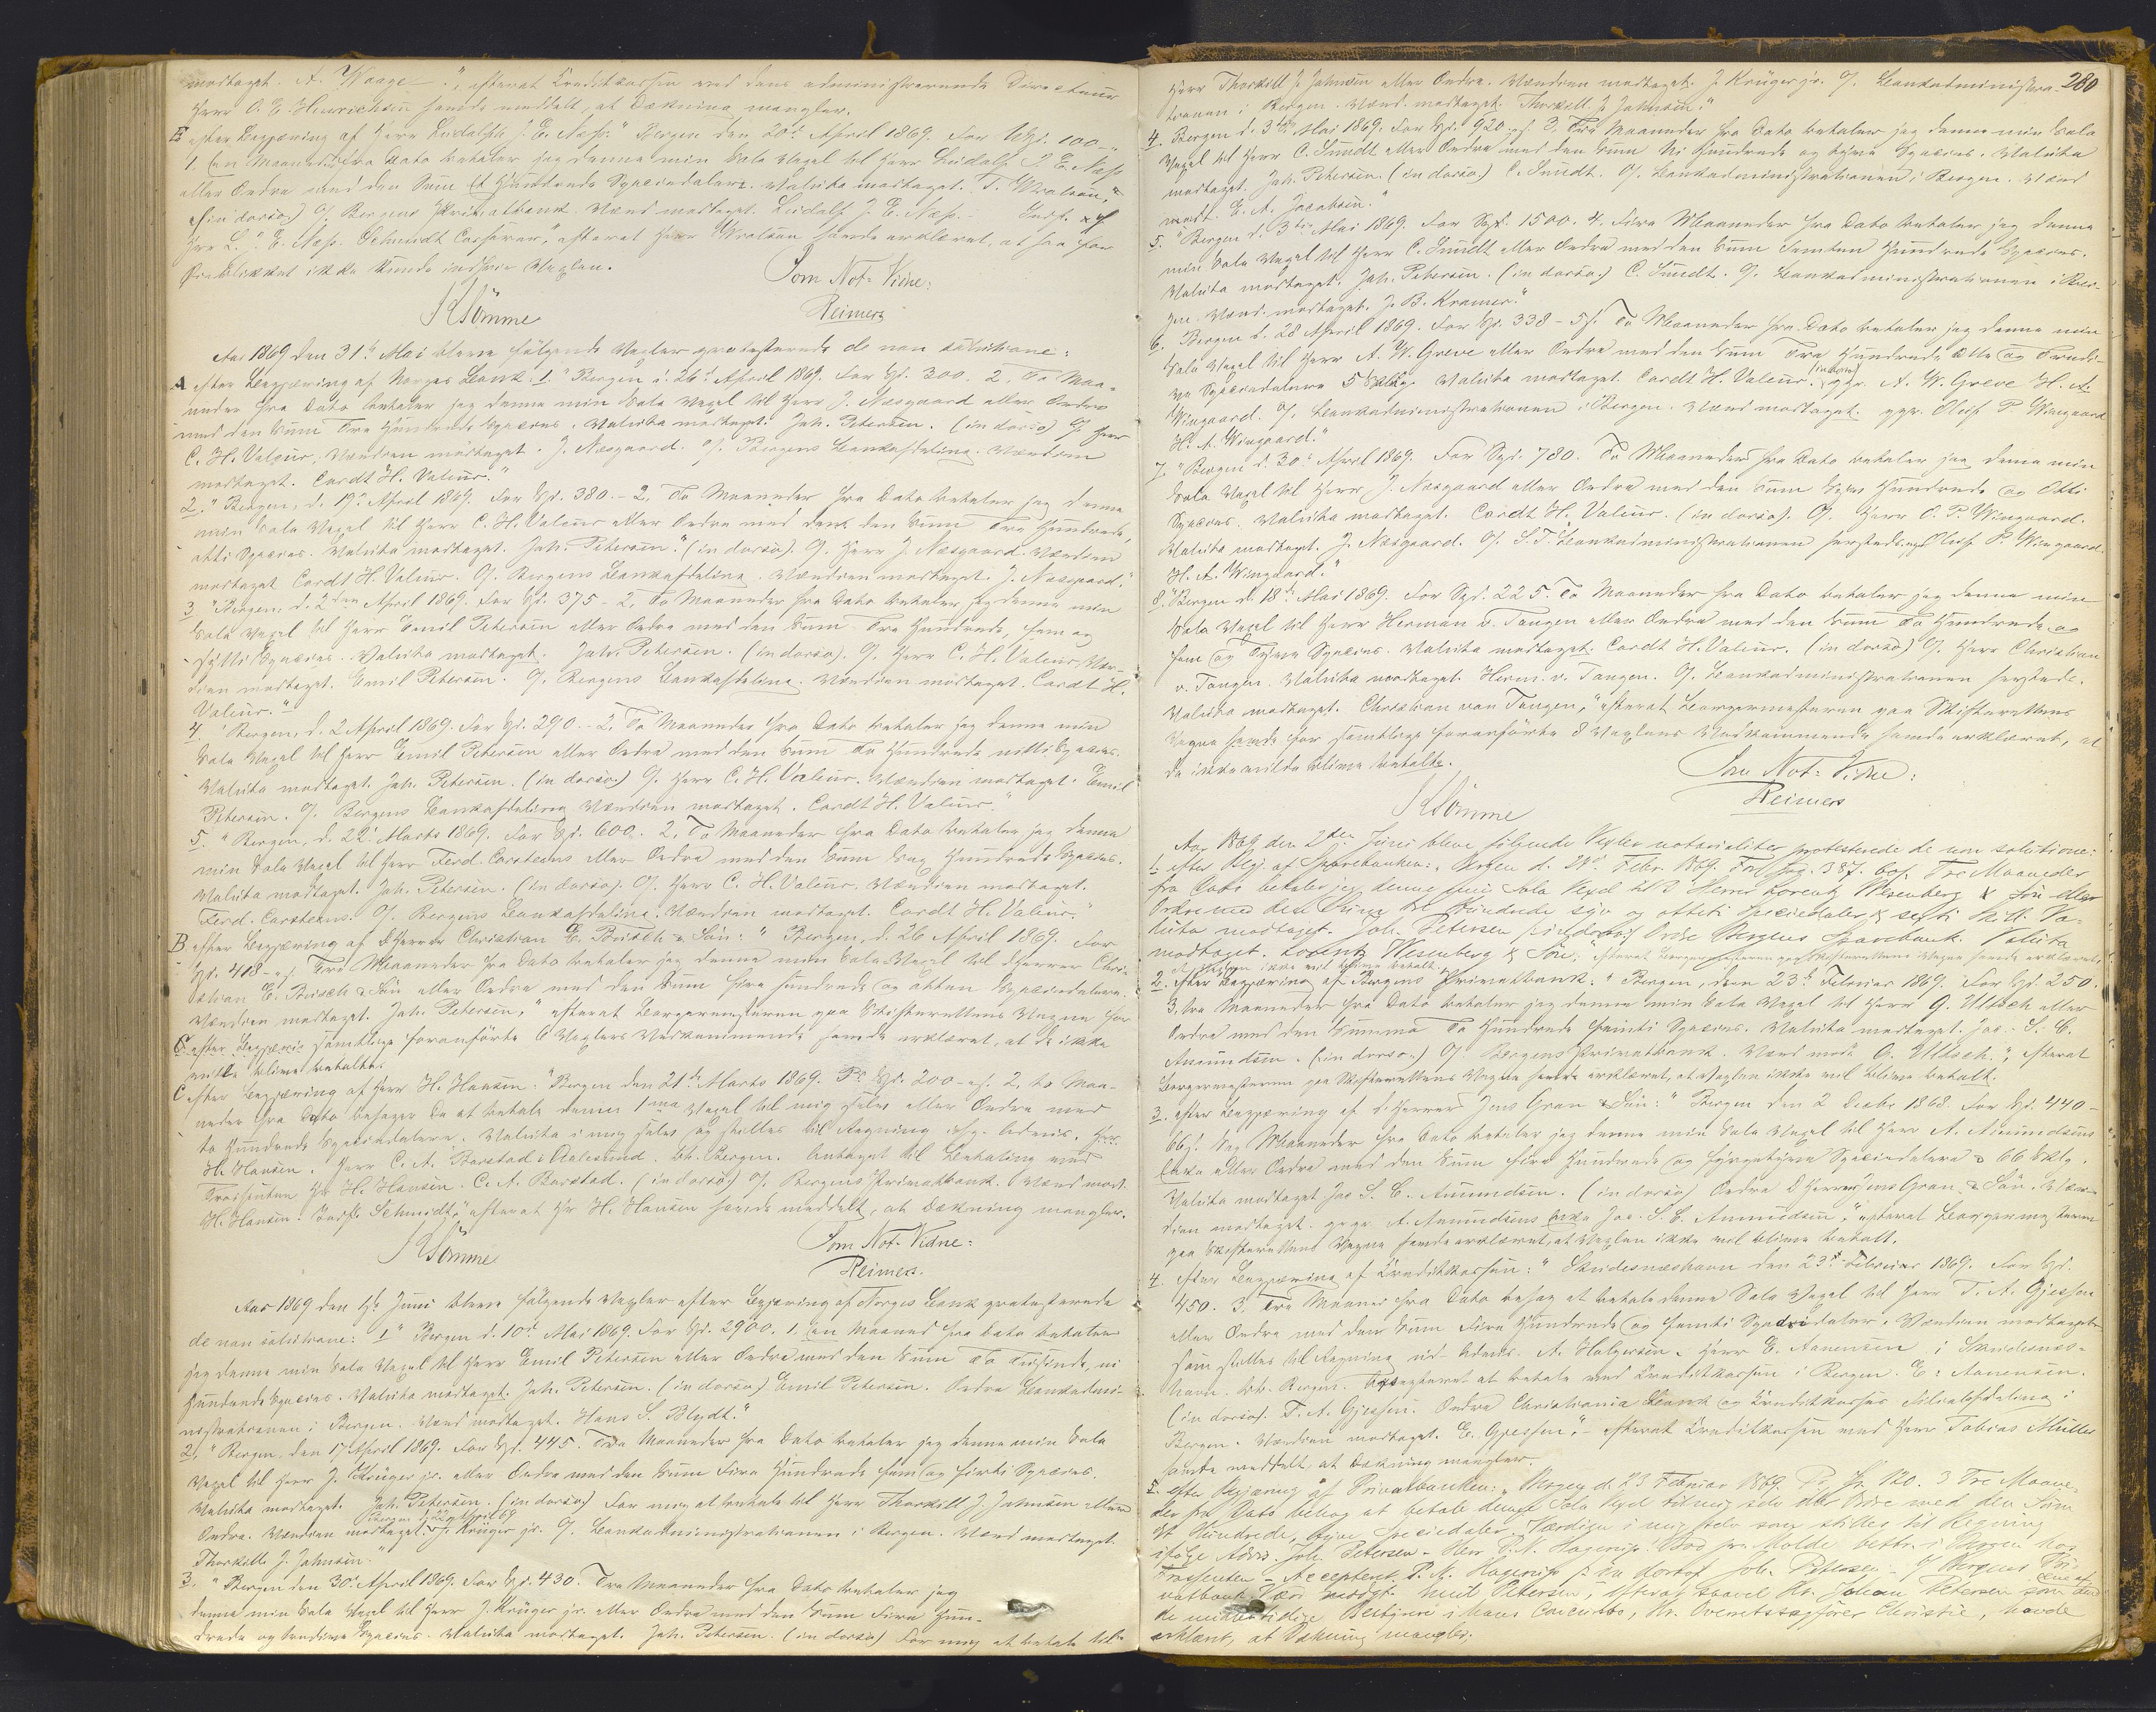 modtaget. A. Waage –", efterat Creditkassen ved dens administrerende Directeur
Herr O. E. Hinrichsen havde meddelt, at Dækning mangler.
B efter Begjæring af Herr Ludolph J. E. Næss. "Bergen den 20de April 1869. For Spd. 100 –
1. Een Maaned fra Dato betaler jeg denne min Sola Vexel til Herr Ludolf J. E. Næss
eller Ordre med den Sum Et Hundrede Speciedaler. Valuta modtaget. T. Wratsen."
(in dorso) O/ Bergens Privatbank. Værd modtaget. Ludolf J. E. Næss.
for L. J. E. Næss. Schmidt Casserer," efterat Herr Wratsen havde erklæret, at han for
Øieblikket ikke kunde indfrie Vexlen.
Som Not. Vidne:
KSömme Reimers
Aar 1869 den 31te Mai bleve følgende Vexler protesterede de non solutione:
A efter Begjæring af Norges Bank: 1. "Bergen d. 26de April 1869. For Spd. 300. 2. To Maa-
neder fra Dato betaler jeg denne min Sola Vexel til Herr J. Næsgaard eller Ordre
med den Sum Tre Hundrede Species. Valuta modtaget. Joh. Petersen. (in dorso) O/ Herr
C. H. Valeur, Værdien modtaget. J. Næsgaard. O/ Bergens Bankafdeling. Værdien
modtaget. Cordt H. Valeur."
2. "Bergen, d. 19de April 1869. For Spd. 380. – 2. To Maaneder fra Dato betaler jeg denne
min Sola Vexel til Herr C. H. Valeur eller Ordre med den Sum Tre Hundrede,
otti Species. Valuta modtaget. Joh. Petersen." (in dorso). O. Herr J. Næsgaard. Værdien
modtaget Cordt H. Valeur. O/ Bergens Bankafdeling. Værdien modtaget. J. Næsgaard."
3. "Bergen, d. 2den April 1869. For Spd. 375 – 2. To Maaneder fra Dato betaler jeg denne min
Sola Vexel til Herr Emil Petersen eller Ordre med den Sum Tre Hundrede, fem og
sytti Species. Valuta modtaget. Joh. Petersen. (in dorso). O/ Herr C. H. Valeur, Vær-
dien modtaget. Emil Petersen. O/ Bergens Bankafdeling. Værdien modtaget. Cordt H.
Valeur."
4. "Bergen, d. 2 April 1869. For Spd. 290. – 2. To Maaneder fra Dato betaler jeg denne min
Sola Vexel til Herr Emil Petersen eller Ordre med den Sum To Hundrede nitti Species.
Valuta modtaget. Joh. Petersen. (in dorso.) O/ Herr C. H. Valeur. Værdien modtaget. Emil
Petersen. O/ Bergens Bankafdeling Værdien modtaget. Cordt H. Valeur."
5. "Bergen, d. 22de Marts 1869. For Spd. 600. 2. To Maaneder fra Dato betaler jeg denne
min Sola Vexel til Herr Ferd. Carstens eller Ordre med den Sum Sex Hundrede Species.
Valuta modtaget. Joh. Petersen. (in dorso). O/ Herr C. H. Valeur. Værdien modtaget.
Ferd. Carstens. O/ Bergens Bankafdeling. Værdien modtaget. Cordt H. Valeur."
B efter Begjæring af DHerrer Christian E. Brisch & Søn: "Bergen, d. 26 April 1869. For
Spd. 418 – Tre Maaneder fra Dato betaler jeg denne min Sola Vexel til DHerrer Chri-
stian E. Brisch & Søn eller Ordre med den Sum fire hundrede og atten Speciedaler.
Værdien modtaget. Joh. Petersen," efterat Borgermesteren paa Skifterettens Vegne for
samtlige foranførte 6 Vexlers Vedkommende havde erklæret, at de ikke
ville blive betalte.
C efter Begjæring af Herr H. Hansen. "Bergen den 21de Marts 1869. Pr Spd. 200 – 2. to Maa-
neder fra Dato behager De at betale denne 1ma Vexel til mig selv eller Ordre med
to Hundrede Speciedaler. Valuta i mig selv og stilles til Regning ifg. Advis.
H. Hansen. Herr C. A. Borstad i Aalesund. bet. Bergen. Antaget til Betaling ved
Trassenten Hr H. Hansen. C. A. Borstad. (in dorso) O/ Bergens Privatbank. Værd modt.
H. Hansen. Schmidt," efterat Hr H. Hansen havde meddelt, at Dækning mangler.
Som Not. Vidne:
KSömme Reimers.
Aar 1869 den 1ste Juni bleve følgende Vexler efter Begjæring af Norges Bank protesterede
de non solutione: 1" Bergen d. 10de Mai 1869. For Spd. 2900. 1. Een Maaned fra Dato betaler
jeg denne min Sola Vexel til Herr Emil Petersen eller Ordre med den Sum To Tusinde, ni
Hundrede Species. Valuta modtaget. Joh. Petersen. (in dorso) Emil Petersen. Ordre Bankadmi-
nistrationen i Bergen. Værd modtaget. Hans S. Blydt."
2. "Bergen, den 17 April 1869. For Spd. 445. Tre Maaneder fra Dato betaler jeg denne min Sola
Vexel til Herr J. Krüger jr. eller Ordre med den Sum Fire Hundrede fem og firti Species.
Valuta modtaget. Joh. Petersen. (in dorso) For mig at betale til Herr Thorkill J. Johnsen eller
Bergen d. 29 April 69
Ordre. Værdien modtaget. J. Krüger jr. O/ Bankadministrationen i Bergen. Værd modtaget.
Thorkill J. Johnsen."
3. "Bergen den 30te April 1869. For Spd. 430. Tre Maaneder fra Dato betaler jeg
denne min Sola Vexel til Herr J. Krüger jr. eller Ordre med den Sum Fire Hun-
drede og tredive Species. Valuta modtaget. Joh. Petersen. (in dorso) For mig at betale til
280
Herr Thorkill J. Johnsen eller Ordre. Værdien modtaget. J. Krüger jr. O/. Bankadministra-
tionen i Bergen. Værd. modtaget. Thorkill. J. Johnsen."
4. Bergen d. 3die Mai 1869. For Spd. 920. 3. Tre Maaneder fra Dato betaler jeg denne min Sola
Vexel til Herr C. Sundt eller Ordre med den Sum Ni Hundrede og tyve Species. Valuta
modtaget. Joh. Petersen. (in dorso.) C. Sundt. O/. Bankadministrationen i Bergen. Værd
modt. E. A. Jacobsen."
5. "Bergen d. 3die Mai 1869. For Spd. 1500. 4. Fire Maaneder fra Dato betaler jeg denne
min Sola Vexel til Herr C. Sundt eller Ordre med den Sum Femten Hundrede Species.
Valuta modtaget. Joh. Petersen. (in dorso.) C. Sundt. O/. Bankadministrationen i Ber-
gen. Værd. modtaget. J. B. Kramer."
6. Bergen d. 28 April 1869. For Spd. 338 – 5 s. To Maaneder fra Dato betaler jeg denne min
Sola Vexel til Herr A. W. Greve eller Ordre med den Sum Tre Hundrede Otte og Tredi-
(in dorso)
ve Speciedaler 5 Skillg. Valuta modtaget. Cordt H. Valeur. ppr. A. W. Greve H. A.
Wingaard. O/. Bankadministrationen i Bergen. Værd modtaget. ppr. Oluf P. Wingaard
H. A. Wingaard."
7. "Bergen d. 30te April 1869. For Spd. 780. To Maaneder fra Dato betaler jeg denne min
Sola Vexel til Herr J. Næsgaard eller Ordre med den Sum Syv Hundrede og Otti
Species. Valuta modtaget. Cordt H. Valeur. (in dorso). O/. Herr O. P. Wingaard.
Valuta modtaget. J. Næsgaard. O/. S. T. Bankadministrationen hersteds. ppr Oluf P. Wingaard.
H. A. Wingaard."
8. "Bergen d. 18de Mai 1869. For Spd. 225. To Maaneder fra Dato betaler jeg denne min
Sola Vexel til Herr Herman v. Tangen eller Ordre med den Sum To Hundrede og
fem og Tyve Species. Valuta modtaget. Cordt H. Valeur. (in dorso) O/. Herr Christian
v. Tangen. Valuta modtaget. Herm. v. Tangen. O/. Bankadministrationen hersteds.
Valuta modtaget. Christian von Tangen," efterat Borgermesteren paa Skifterettens
Vegne havde for samtlige foranførte 8 Vexlers Vedkommende havde erklæret, at
de ikke vilde blive betalte.
Som Not. Vidne:
KSömme Reimers
Aar 1869 den 2den Juni bleve følgende Vexler notarialiter protesterede de non solutione:
1. efter Begj. af Sparebanken: "Bergen d. 21de Febr. 1869. For Spd. 387. 60 s. Tre Maaneder
fra Dato betaler jeg denne min Sola Vexel til D'Herrer Lorentz Wesenberg & Søn eller
Ordre med den Sum tre Hundrede syv og otteti Speciedaler & sexti Skill. Va-
luta modtaget. Joh. Petersen (in dorso) Ordre Bergens Sparebank. Valuta
modtaget. Lorentz Wesenberg & Søn", efterat Borgermesteren paa Skifterettens Vegne havde erklæret,
at Vexlen ikke vil blive betalt.
2. efter Begjæring af Bergens Privatbank: "Bergen, den 23de Februar 1869. For Spd. 250.
3. tre Maaneder fra Dato betaler jeg denne min Sola Vexel til Herr G. Ultsch eller
Ordre med den Summa To Hundrede femti Species. Valuta modtaget. Jac. S. C.
Amundsen. (in dorso.) O/ Bergens Privatbank. Værd modt. G. Ultsch.", efterat
Borgermesteren paa Skifterettens Vegne havde erklæret, at Vexlen ikke vil blive betalt.
3. efter Begjæring af d'Herrer Jens Gran & Søn: "Bergen den 2 Decbr 1868. For Spd. 440 –
66 s. Sex Maaneder fra Dato betaler jeg denne min Sola Vexel til Herr A. Amundsens
Enke eller Ordre med den Sum fire Hundrede og fyrgetyve Speciedaler & 66 Sklg.
Valuta modtaget Jac S. C. Amundsen. (in dorso) Ordre DHerrer Jens Gran & Søn. Vær-
dien modtaget. pr pr. A. Amundsens Enke Jac. S. C. Amundsen," efterat Borgermesteren
paa Skifterettens Vegne havde erklæret, at Vexlen ikke vil blive betalt.
4. efter Begjæring af Creditkassen: "Skudesnæshavn den 23de Februar 1869. For Spd.
450. 3. Tre Maaneder fra Dato behag at betale denne Sola Vexel til Herr T. A. Gjessen
eller Ordre med den Sum Fire Hundrede og femti Speciedaler. Værdien modtaget
som stilles til Regning uden Advis. A. Holgersen. Herr E. Aanensen i Skudesnæs-
havn. bet. Bergen. Accepteret at betale ved Creditkassen i Bergen. E. Aanensen.
(in dorso). T. A. Gjessen. Ordre Christiania Bank og Creditkasses Filialafdeling i
Bergen. Værdien modtaget. E. Gjessen", – efterat Creditkassen ved Herr Tobias Müller
havde meddelt at Dækning mangler.
5. efter Begjæring af Privatbanken: "Bergen d. 23 Februar 1869. Pr. Sp. 120. 3 Tre Maane-
der fra Dato behag at betale denne Sola Vexel til mig selv eller Ordre med den Sum
Et Hundrede, tyve Speciedaler. Værdien i mig selv som stilles til Regning
ifølge Advis. Joh. Petersen. – Herr P. A. Hagerup. Bod pr. Molde bettr. i Bergen hos
Trassenten – Accepteret. P. A. Hagerup (in dorso) Joh. Petersen – O/ Bergens Pri-
vatbank Værd modtgt. Emil Petersen", efterat saavel Hr. Johan Petersen som den
ene af
de midlertidige Bestyrere i hans Concursbo, Hr. Overretssagfører Christie, havde
erklæret, at Dækning mangler.